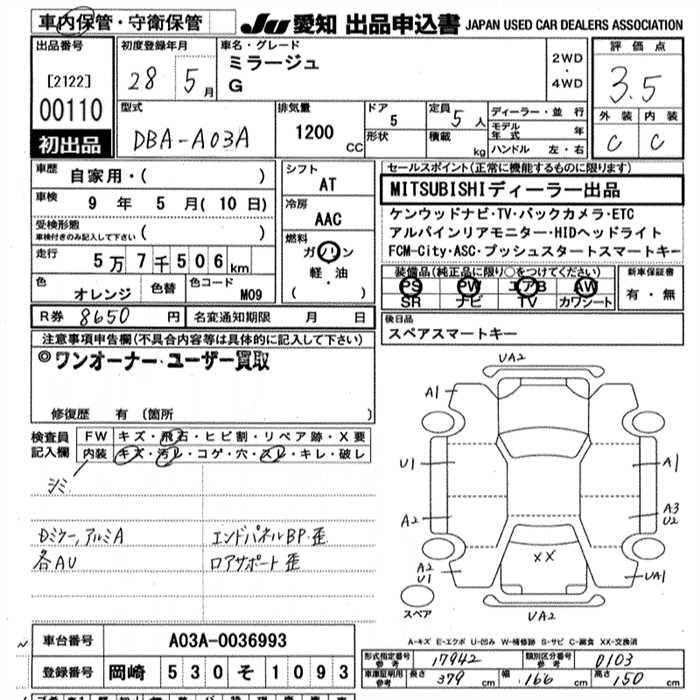 車内保管・守衛保管
JU 愛知 出品申込書 JAPAN USED CAR DEALERS ASSOCIATION
出品番号
[2122]
00110
初出品
初度登録年月
28 5月
車名・グレード
ミラージュ
G
2WD
・
4WD
評価点
3.5
外装 内装
C C
型式
DBA-A03A
排気量
1200 CC
ドア
5
形状
定員
5人
積載
kg
ディーラー・並行
モデル年式 年
ハンドル 左・右
車歴
自家用・( )
車検
9年 5月(10日)
受検形態
車検付きのみ記入して下さい ( )
走行
5万7千506km
色
オレンジ
色替
色コード
M09
シフト
AT
冷房
AAC
燃料
ガソリン
軽・油
( )
セールスポイント(正常に機能するものに限ります)
MITSUBISHIディーラー出品
ケンウッドナビ・TV・バックカメラ・ETC
アルパインリアモニター・HIDヘッドライト
FCM-City・ASC・プッシュスタートスマートキー
装備品(純正品に限り○をつけてください)
PS PW エアB AW
SR ナビ TV カワシート
新車保証書
有・無
R券 8650円 名変通知期限 月 日
後日品
スペアスマートキー
注意事項申告欄(不具合内容等は具体的に記入して下さい)
◎ワンオーナー・ユーザー買取
修復歴 有 (箇所 )
検査員記入欄
FW キズ・飛石・ヒビ割・リペア跡・X要
内装 キズ・汚レ・コゲ・穴・スレ・キレ・破レ
シミ
Dミラー,アルミA エンドパネルBP・歪
各AU ロアサポート歪
UA2
A1
U1
A1
A2
A3
U2
A2
U1
XX
UA1
スペア
UA2
A-キズ E-エクボ U-凹み W-補修跡 S-サビ C-腐食 XX-交換済
車台番号 A03A-0036993
登録番号 岡崎 530 そ 1093
形式指定番号 参考 17942 類別区分番号 参考 0103
車庫証明用 参考 長さ 379cm 幅 166cm 高さ 150cm